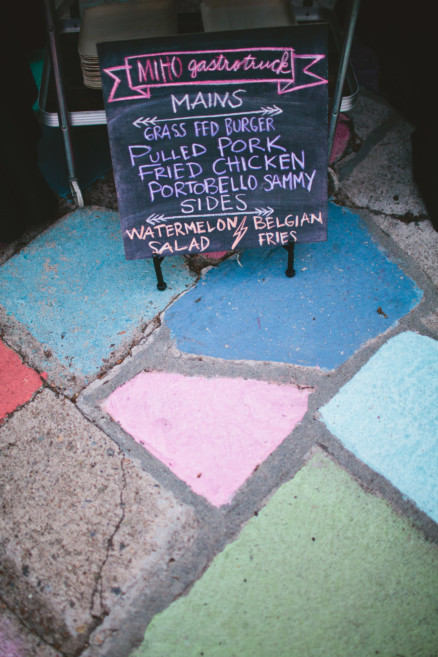 MIHO gastrotruck
MAINS
GRASS FED BURGER
PULLED PORK
FRIED CHICKEN
PORTOBELLO SAMMY
SIDES
WATERMELON SALAD
BELGIAN FRIES